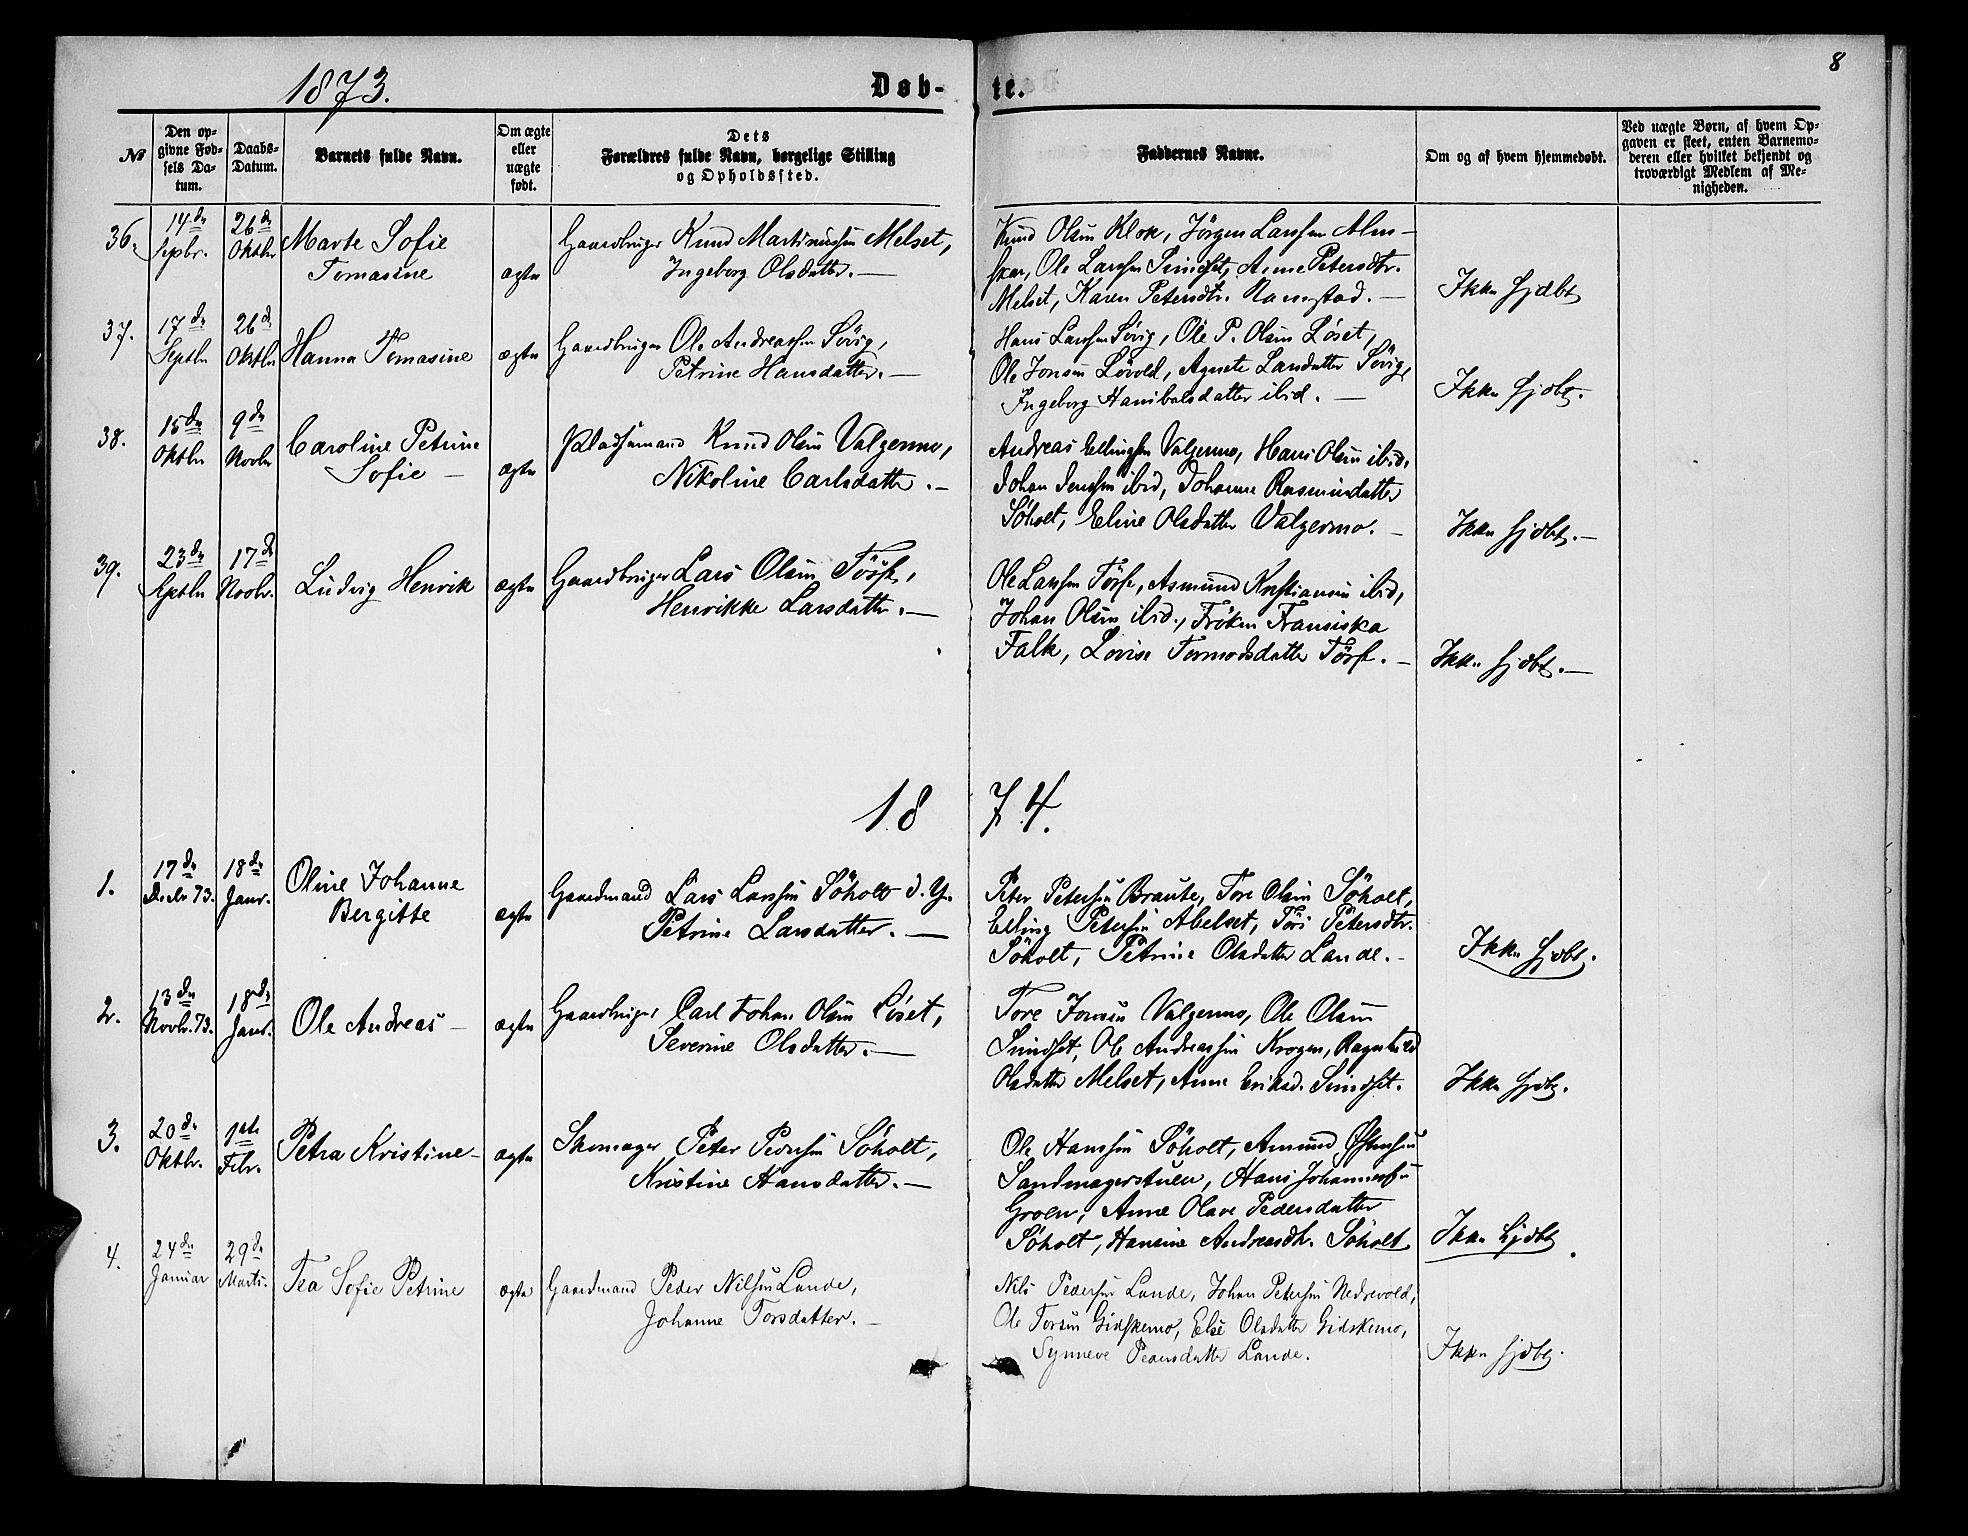 8
1873.
Døb-
te.
No
Den op-
givne Fød-
sels Da-
tum.
Daabs-
Datum.
Barnets fulde Navn.
Om ægte
eller
uægte
født.
Dets
Forældres fulde Navn, borgelige Stilling
og Opholdssted.
Faddernes Navne.
Om og af hvem hjemmedøbt.
Ved uægte Børn, af hvem Op-
gaven er skeet, enten Barnemo-
deren eller hvilket bekjendt og
troværdigt Medlem af Me-
nigheden.
36.
14de
Septbr.
26de
Oktbr
Marte Sofie
Tomasine
ægte
Gaardbruger Knud Martinussen Melset,
Ingeborg Olsdatter. —
Knud Olsen Klok, Jörgen Larssen Alm-
skar, Ole Larssen Sindset, Anne Petersdtr.
Melset, Karen Petersdtr. Ramstad. —
Ikke hjdbt
37.
17de
Septbr
26de
Oktbr
Hanna Tomasine
ægte
Gaardbruger Ole Andreassen Sövig,
Petrine Hansdatter. —
Hans Larssen Sövig, Ole P. Olsen Löset,
Ole Jonsen Lövold, Agnete Larsdatter Sövig,
Ingeborg Hanibalsdatter ibid. —
Ikke hjdbt.
38.
15de
Oktbr
9de
Novbr
Caroline Petrine
Sofie —
ægte
Pladsemand Knud Olsen Valgermo,
Nikoline Carlsdatter. —
Andreas Ellingsen Valgermo, Hans Olsen ibid,
Johan Jenssen ibid, Johanne Rasmusdatter
Söholt, Eline Olsdatter Valgermo. —
Ikke hjdbt. —
39.
23de
Septbr
17de
Novbr.
Ludvig Henrik
ægte
Gaardbruger Lars Olsen Törse,
Henrikke Larsdatter. —
Ole Larssen Törse, Asmund Kristiansen ibid,
Johan Olsen ibid., Fröken Fransiska
Falk, Lovise Tormodsdatter Törse. —
Ikke hjdbt. —
18
74.
1.
17de
Decbr 73.
18de
Janr.
Oline Johanne
Bergitte
ægte
Gaardmand Lars Larssen Söholt d. Y.
Petrine Larsdatter. —
Peter Petersen Braute, Tore Olsen Söholt,
Elling Petersen Abelset, Töri Petersdtr.
Söholt, Petrine Olsdatter Lande. —
Ikke hjdbt.
2.
13de
Novbr. 73.
18de
Janr.
Ole Andreas —
ægte
Gaardbruger Carl Johan Olsen Löset,
Severine Olsdatter. —
Tore Jonsen Valgermo, Ole Olsen
Sindset, Ole Andreassen Krogen, Ragnhild
Olsdatter Melset, Anne Eriksd. Sindset.
Ikke hjdbt.
3.
20de
Oktbr.
1ste
Febr.
Petra Kristine —
ægte
Skomager Peter Pedersen Söholt,
Kristine Hansdatter. —
Ole Hanssen Söholt, Amund Østensen
Sandmagerstuen, Hans Johannessen
Groen, Anne Olave Pedersdatter
Söholt, Hansine Andreasdtr. Söholt
Ikke hjdbt.
4.
24de
Januar
29de
Marts.
Tea Sofie Petrine
ægte
Gaardmand Peder Nilsen Lande,
Johanne Torsdatter. —
Nils Pedersen Lande, Johan Petersen Nedrevold,
Ole Torsen Gidskemo, Else Olsdatter Gidskemo,
Synneve Pedersdatter Lande.
Ikke hjdbt.